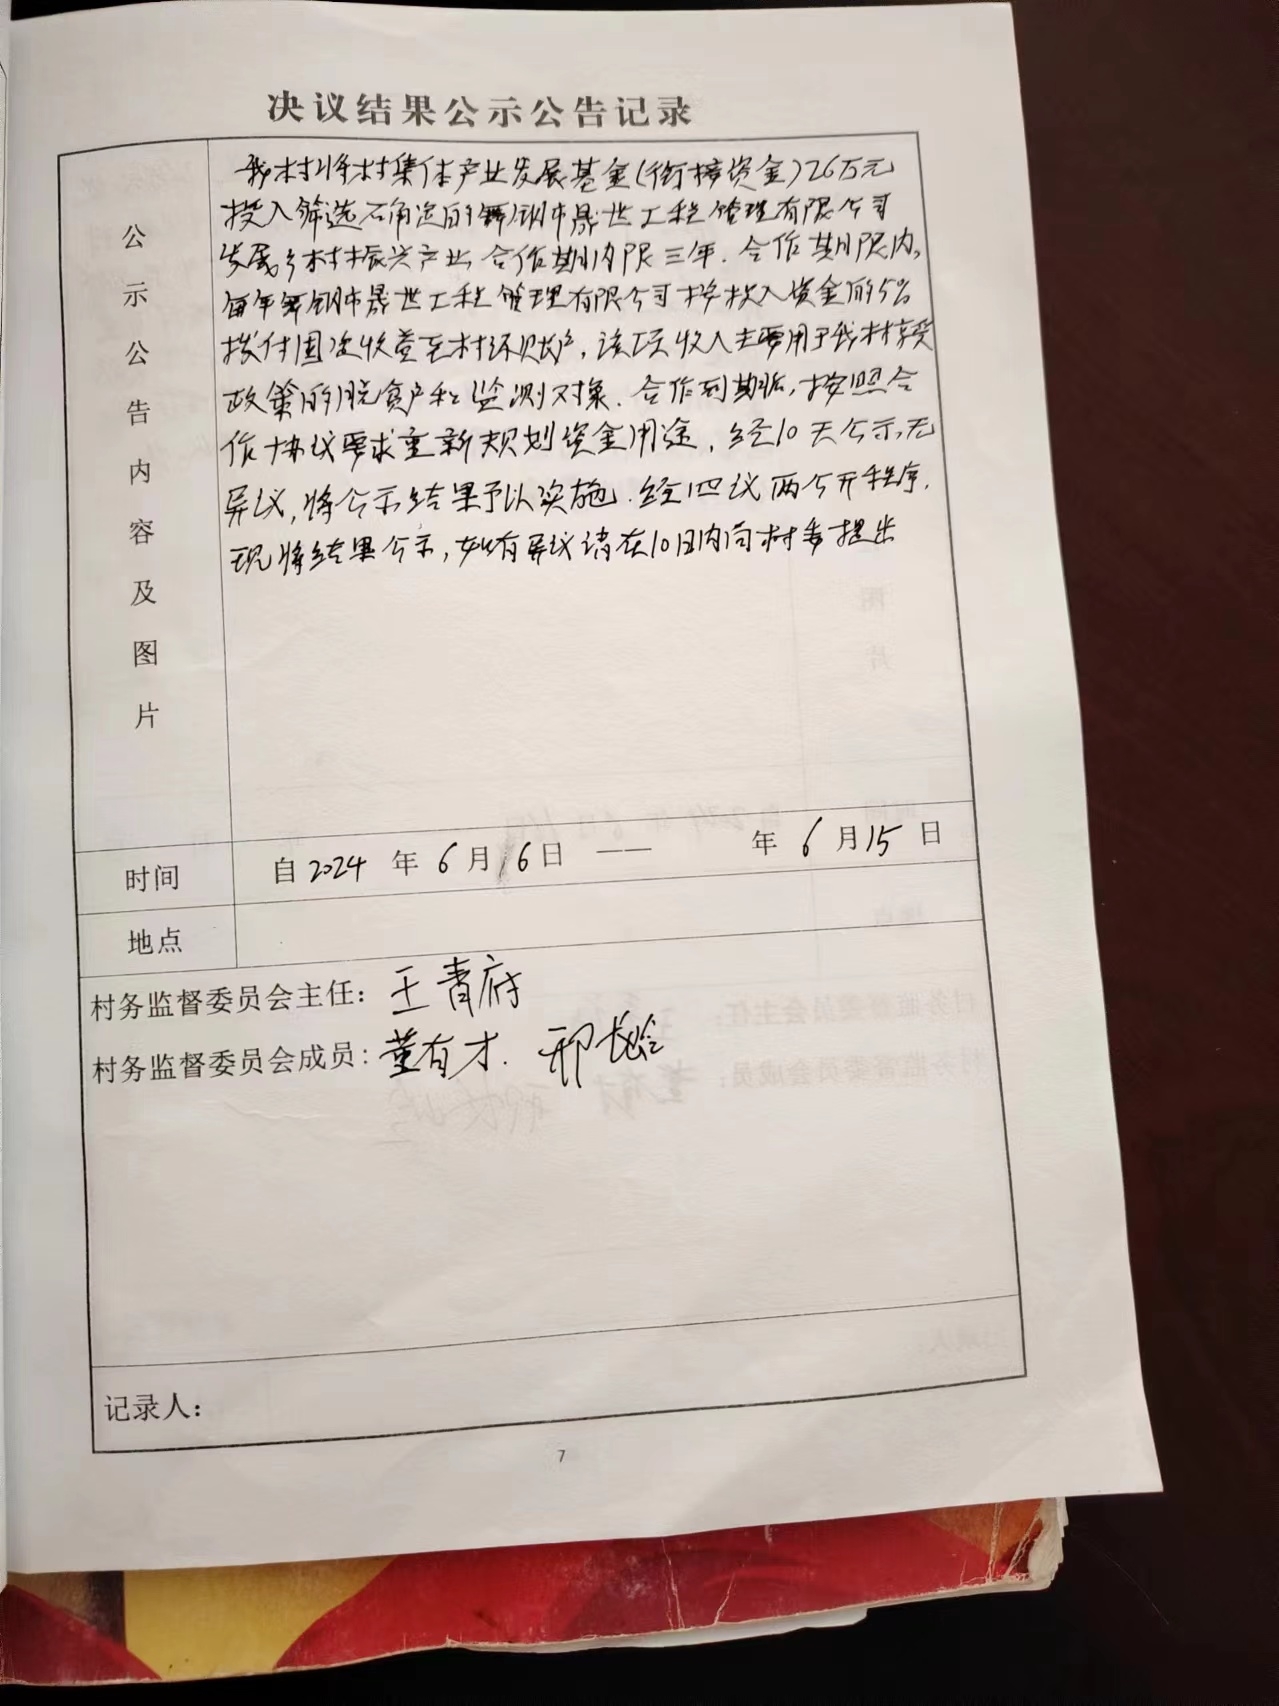 决议结果公示公告记录
公示公告内容及图片
我村将村集体产业发展基金(衔接资金)26万元
投入筛选石角定的舞钢市晟世工程管理有限公司
发展乡村振兴产业,合作期内限三年.合作期限内,
每年舞钢市晟世工程管理有限公司按投入资金的5%
拨付固定收益至村级账户,该项收入主要用于我村享受
政策的脱贫户和监测对象.合作到期后,按照合
作协议要求重新规划资金用途,经10天公示无
异议,将公示结果予以实施.经四议两公开程序,
现将结果公示,如有异议请在10日内向村委提出
时间 自2024年6月6日 —— 年6月15日
地点
村务监督委员会主任: 王青府
村务监督委员会成员: 董有才.邢
记录人:
7